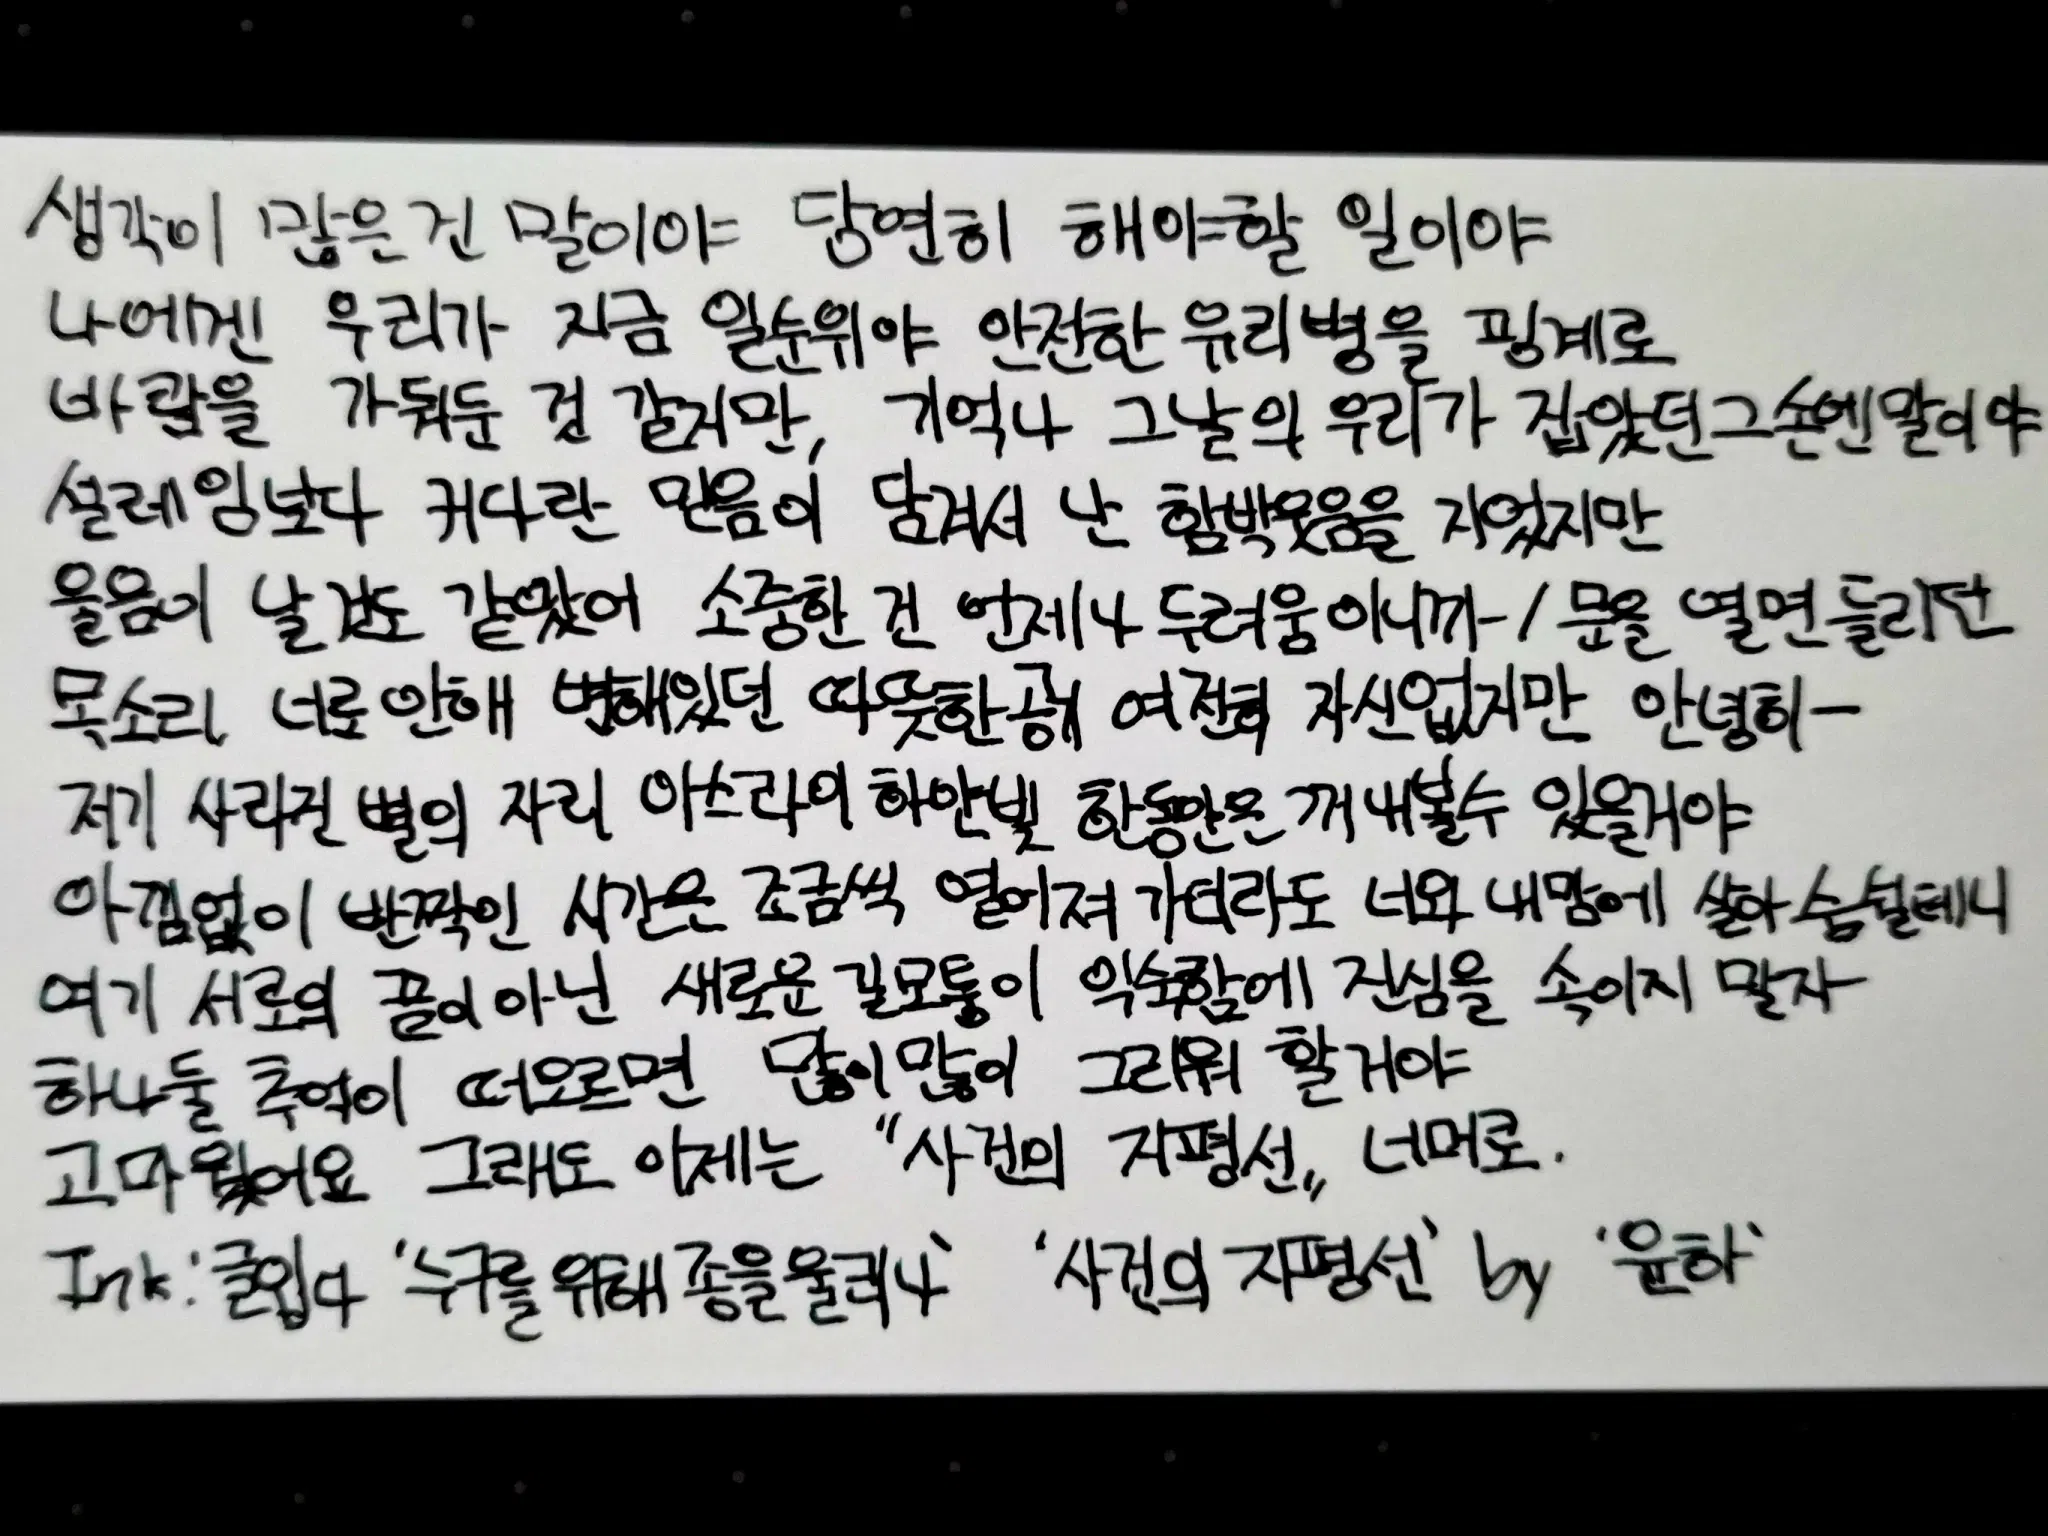 생각이 많은 건 말이야 당연히 해야할 일이야
나에겐 우리가 지금 일순위야 안전한 유리병을 핑계로
바람을 가둬둔 것 같지만, 기억나 그날의 우리가 잡았던 그 손엔 말이야
설레임보다 커다란 믿음이 담겨서 난 함박웃음을 지었지만
울음이 날 것도 같았어 소중한 건 언제나 두려움이니까-/문을 열면 들리던
목소리 너로 인해 변해있던 따뜻한 공기 여전히 자신 없지만 안녕히-
저기 사라진 별의 자리 아스라이 하얀 빛 한동안은 꺼내볼 수 있을거야
아낌없이 반짝인 시간은 조금씩 옅어져 가더라도 너와 내 맘에 살아 숨 쉴테니
여기 서로의 끝이 아닌 새로운 길모퉁이 익숙함에 진심을 속이지 말자
하나 둘 추억이 떠오르면 많이 많이 그리워 할거야
고마웠어요 그래도 이제는 "사건의 지평선" 너머로.
Ink: 글입다 '누구를 위해 종을 울리나' '사건의 지평선' by '윤하'